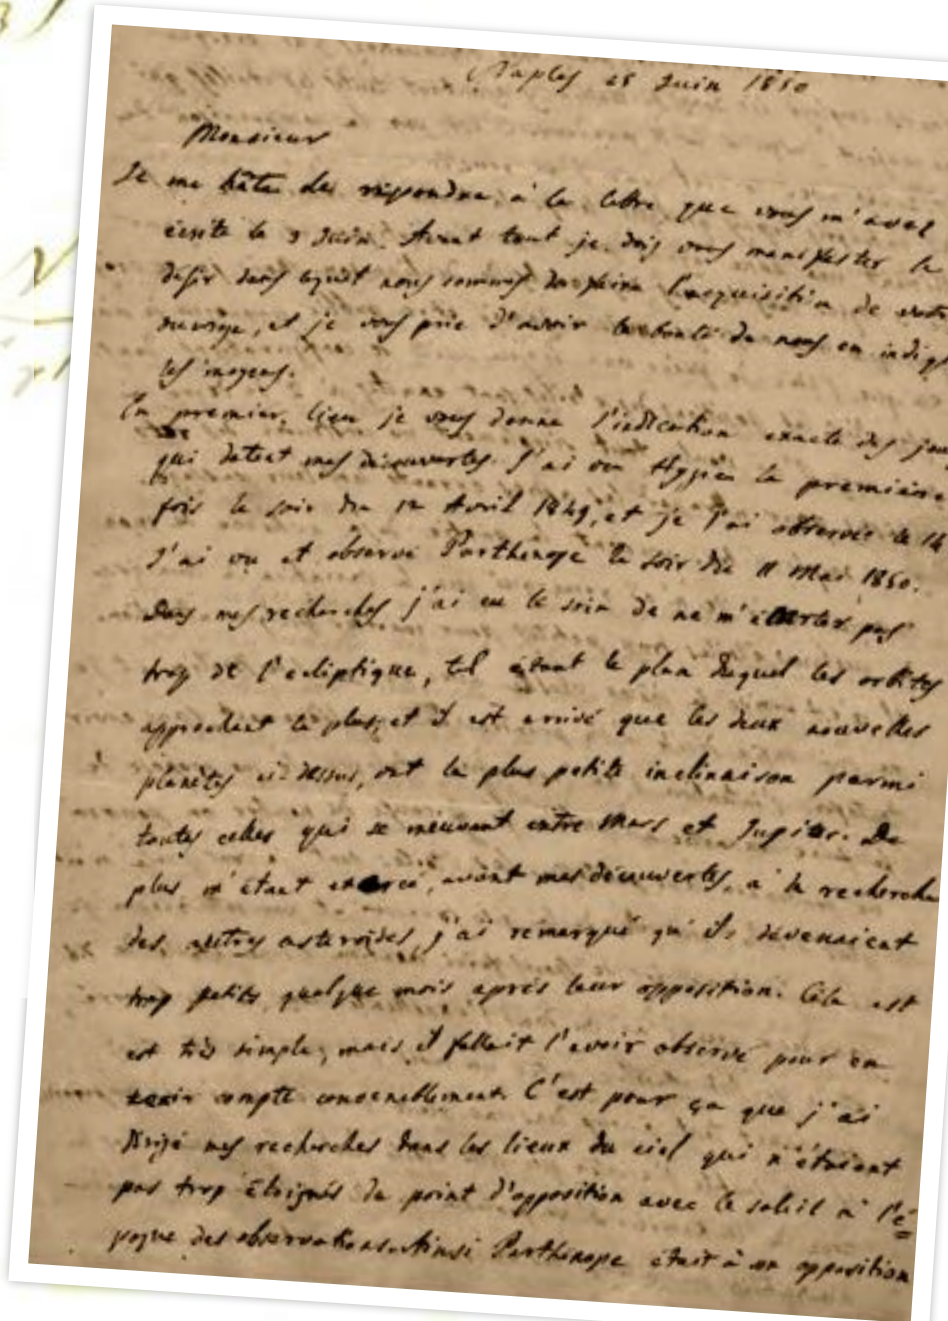 Naples 28 Juin 1850
Monsieur
Je me hâte de répondre à la lettre que vous m'avez
écrite le 3 Juin. Avant tout je dois vous manifester le
désir dans lequel nous sommes de faire l'acquisition de votre
ouvrage, et je vous prie d'avoir la bonté de nous en indiq
les moyens.
En premier lieu je vous donne l'indication exacte des jou
qui datent mes découvertes. J'ai vu Hygiea la première
fois le soir du 12 Avril 1849, et je l'ai observée le 14
J'ai vu et observé Parthenope le soir du 11 Mai 1850.
Dans mes recherches j'ai eu le soin de ne m'écarter pas
trop de l'ecliptique, tel étant le plan duquel les orbites
approchent le plus, et il est arrivé que les deux nouvelles
planètes ci-dessus, ont la plus petite inclinaison parmi
toutes celles qui se meuvent entre Mars et Jupiter. De
plus m'étant exercé, avant mes découvertes, à la recherche
des autres asteroïdes, j'ai remarqué qu'ils devenaient
trop petits quelque mois après leur opposition. Cela est
est très simple, mais il fallait l'avoir observé pour en
tenir compte convenablement. C'est pour ça que j'ai
dirigé mes recherches dans les lieux du ciel qui n'étaient
pas trop éloignés du point d'opposition avec le soleil à l'é=
poque des observations. Ainsi Parthenope était à son opposition